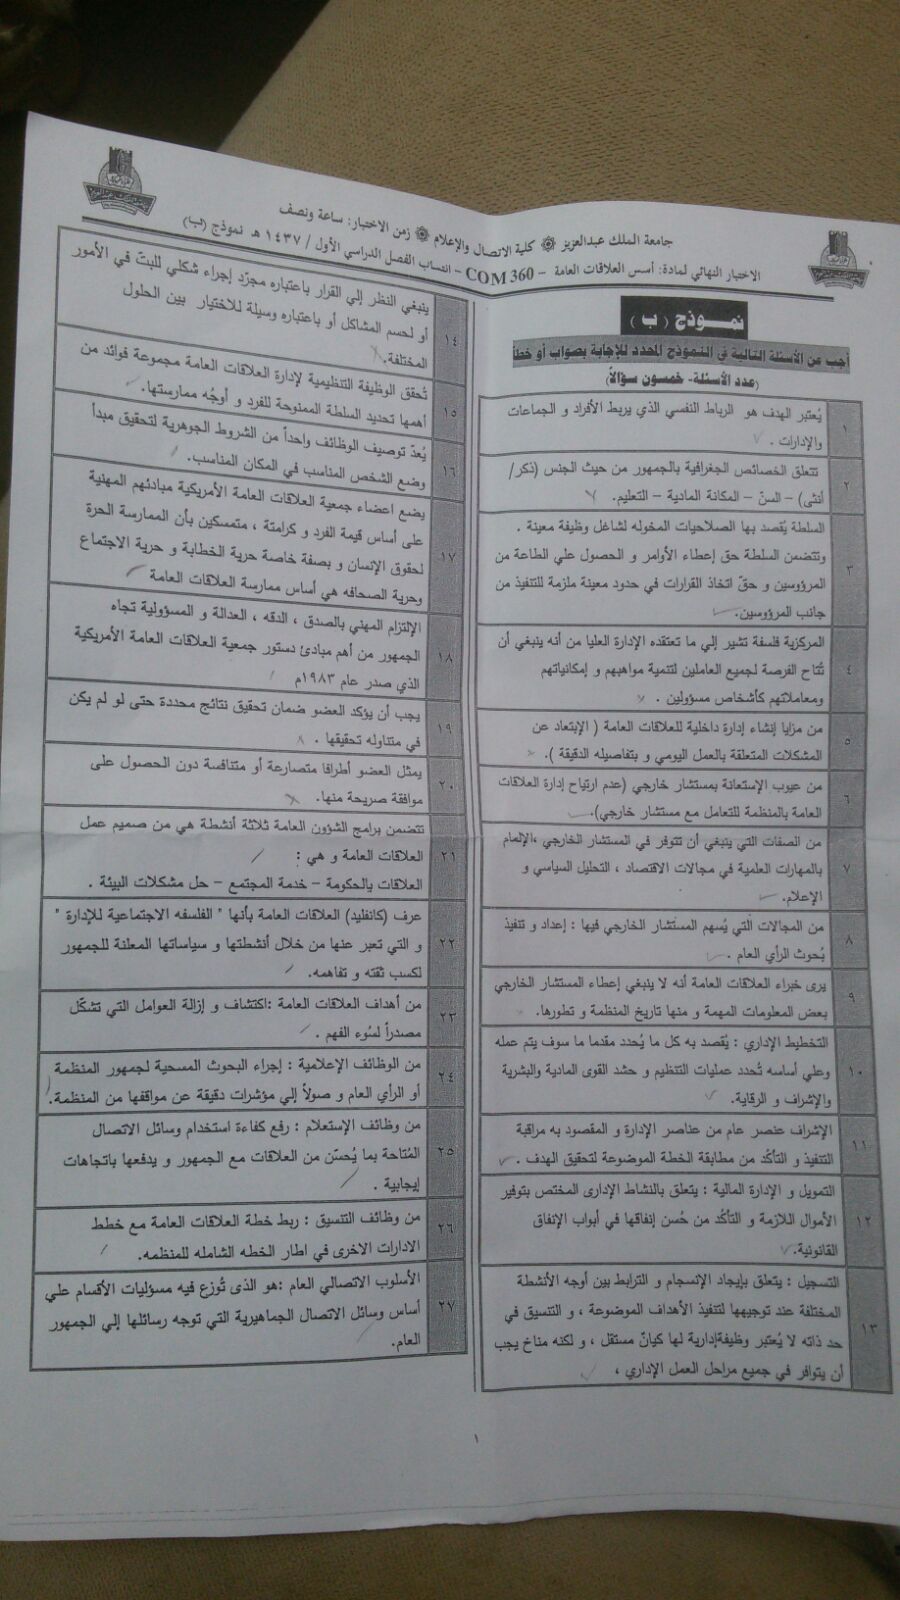 جامعة الملك عبدالعزيز ۞ كلية الاتصال والإعلام ۞ زمن الاختبار: ساعة ونصف
الاختبار النهائي لمادة: أسس العلاقات العامة - COM 360 - انتساب الفصل الدراسي الأول / ١٤٣٧ هـ نموذج (ب)
نمـوذج ( ب )
أجب عن الأسئلة التالية في النموذج المحدد للإجابة بصواب أو خطأ
(عدد الأسئلة- خمسون سؤالاً)
١
يُعتبر الهدف هو الرباط النفسي الذي يربط الأفراد و الجماعات
والإدارات .
٢
تتعلق الخصائص الجغرافية بالجمهور من حيث الجنس (ذكر/
أنثى) – السنّ – المكانة المادية – التعليم.
٣
السلطة يُقصد بها الصلاحيات المخوله لشاغل وظيفة معينة .
وتتضمن السلطة حق إعطاء الأوامر و الحصول علي الطاعة من
المرؤوسين و حقّ اتخاذ القرارات في حدود معينة ملزمة للتنفيذ من
جانب المرؤوسين.
٤
المركزية فلسفة تشير إلي ما تعتقده الإدارة العليا من أنه ينبغي أن
تُتاح الفرصة لجميع العاملين لتنمية مواهبهم و إمكانياتهم
ومعاملاتهم كأشخاص مسؤولين .
٥
من مزايا إنشاء إدارة داخلية للعلاقات العامة ( الإبتعاد عن
المشكلات المتعلقة بالعمل اليومي و بتفاصيله الدقيقة ).
٦
من عيوب الإستعانة بمستشار خارجي (عدم ارتياح إدارة العلاقات
العامة بالمنظمة للتعامل مع مستشار خارجي).
٧
من الصفات التي ينبغي أن تتوفر في المستشار الخارجي ،الإلمام
بالمهارات العلمية في مجالات الاقتصاد ، التحليل السياسي و
الإعلام.
٨
من المجالات التي يُسهم المستشار الخارجي فيها : إعداد و تنفيذ
بُحوث الرأي العام .
٩
يرى خبراء العلاقات العامة أنه لا ينبغي إعطاء المستشار الخارجي
بعض المعلومات المهمة و منها تاريخ المنظمة و تطورها.
١٠
التخطيط الإداري : يُقصد به كل ما يُحدد مقدما ما سوف يتم عمله
وعلي أساسه تُحدد عمليات التنظيم و حشد القوى المادية والبشرية
والإشراف و الرقابة.
١١
الإشراف عنصر عام من عناصر الإدارة و المقصود به مراقبة
التنفيذ و التأكّد من مطابقة الخطة الموضوعة لتحقيق الهدف .
١٢
التمويل و الإدارة المالية : يتعلق بالنشاط الإدارى المختص بتوفير
الأموال اللازمة و التأكّد من حُسن إنفاقها في أبواب الإنفاق
القانونية.
١٣
التسجيل : يتعلق بإيجاد الإنسجام و الترابط بين أوجه الأنشطة
المختلفة عند توجيهها لتنفيذ الأهداف الموضوعة ، و التنسيق في
حد ذاته لا يُعتبر وظيفةإدارية لها كيانٌ مستقل ، و لكنه مناخ يجب
أن يتوافر في جميع مراحل العمل الإداري ،
١٤
ينبغي النظر إلي القرار باعتباره مجرّد إجراء شكلي للبتّ في الأمور
أو لحسم المشاكل أو باعتباره وسيلة للاختيار بين الحلول
المختلفة.
١٥
تُحقق الوظيفة التنظيمية لإدارة العلاقات العامة مجموعة فوائد من
أهمها تحديد السلطة الممنوحة للفرد و أوجُه ممارستها.
١٦
يُعدّ توصيف الوظائف واحداً من الشروط الجوهرية لتحقيق مبدأ
وضع الشخص المناسب في المكان المناسب.
١٧
يضع اعضاء جمعية العلاقات العامة الأمريكية مبادئهم المهنية
على أساس قيمة الفرد و كرامتة ، متمسكين بأن الممارسة الحرة
لحقوق الإنسان و بصفة خاصة حرية الخطابة و حرية الاجتماع
وحرية الصحافه هي أساس ممارسة العلاقات العامة
١٨
الإلتزام المهني بالصدق ، الدقه ، العدالة و المسؤولية تجاه
الجمهور من أهم مبادئ دستور جمعية العلاقات العامة الأمريكية
الذي صدر عام ١٩٨٣م
١٩
يجب أن يؤكد العضو ضمان تحقيق نتائج محددة حتى لو لم يكن
في متناوله تحقيقها .
٢٠
يمثل العضو أطرافا متصارعة أو متنافسة دون الحصول على
موافقة صريحة منها.
٢١
تتضمن برامج الشؤون العامة ثلاثة أنشطة هي من صميم عمل
العلاقات العامة و هي :
العلاقات بالحكومة – خدمة المجتمع – حل مشكلات البيئة .
٢٢
عرف (كانفليد) العلاقات العامة بأنها " الفلسفه الاجتماعية للإدارة "
و التي تعبر عنها من خلال أنشطتها و سياساتها المعلنة للجمهور
لكسب ثقته و تفاهمه.
٢٣
من أهداف العلاقات العامة :اكتشاف و إزالة العوامل التي تشكّل
مصدراً لسُوء الفهم .
٢٤
من الوظائف الإعلامية : إجراء البحوث المسحية لجمهور المنظمة
أو الرأي العام و صولاً إلي مؤشرات دقيقة عن مواقفها من المنظمة.
٢٥
من وظائف الإستعلام : رفع كفاءة استخدام وسائل الاتصال
المُتاحة بما يُحسّن من العلاقات مع الجمهور و يدفعها باتجاهات
إيجابية .
٢٦
من وظائف التنسيق : ربط خطة العلاقات العامة مع خطط
الادارات الاخرى في اطار الخطه الشامله للمنظمه.
٢٧
الأسلوب الاتصالي العام :هو الذى تُوزع فيه مسؤليات الأقسام علي
أساس وسائل الاتصال الجماهيرية التي توجه رسائلها إلي الجمهور
العام.
١